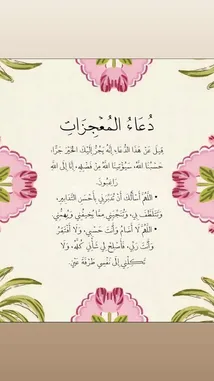 دُعَاءُ المُعْجِزَاتِ
قِيلَ عَنْ هَذَا الدُّعَاءِ إِنَّهُ يَجُرُّ إِلَيْكَ الْخَيْرَ جَرًّا،
حَسْبُنَا اللَّهُ، سَيُؤْتِينَا اللَّهُ مِنْ فَضْلِهِ، إِنَّا إِلَى اللَّهِ
رَاغِبُونَ
• اللَّهُمَّ إِنِّي أَسْأَلُكَ أَنْ تُدَبِّرَنِي بِأَحْسَنِ التَّدَابِيرِ،
وَتَتَلَطَّفَ بِي، وَتُنَجِّيَنِي مِمَّا يُخِيفُنِي وَيُهِمُّنِي
• اللَّهُمَّ لَا أُضَامُ وَأَنْتَ حَسْبِي، وَلَا أَفْتَقِرُ
وَأَنْتَ رَبِّي، فَأَصْلِحْ لِي شَأْنِي كُلَّهُ، وَلَا
تَكِلْنِي إِلَى نَفْسِي طَرْفَةَ عَيْنٍ.